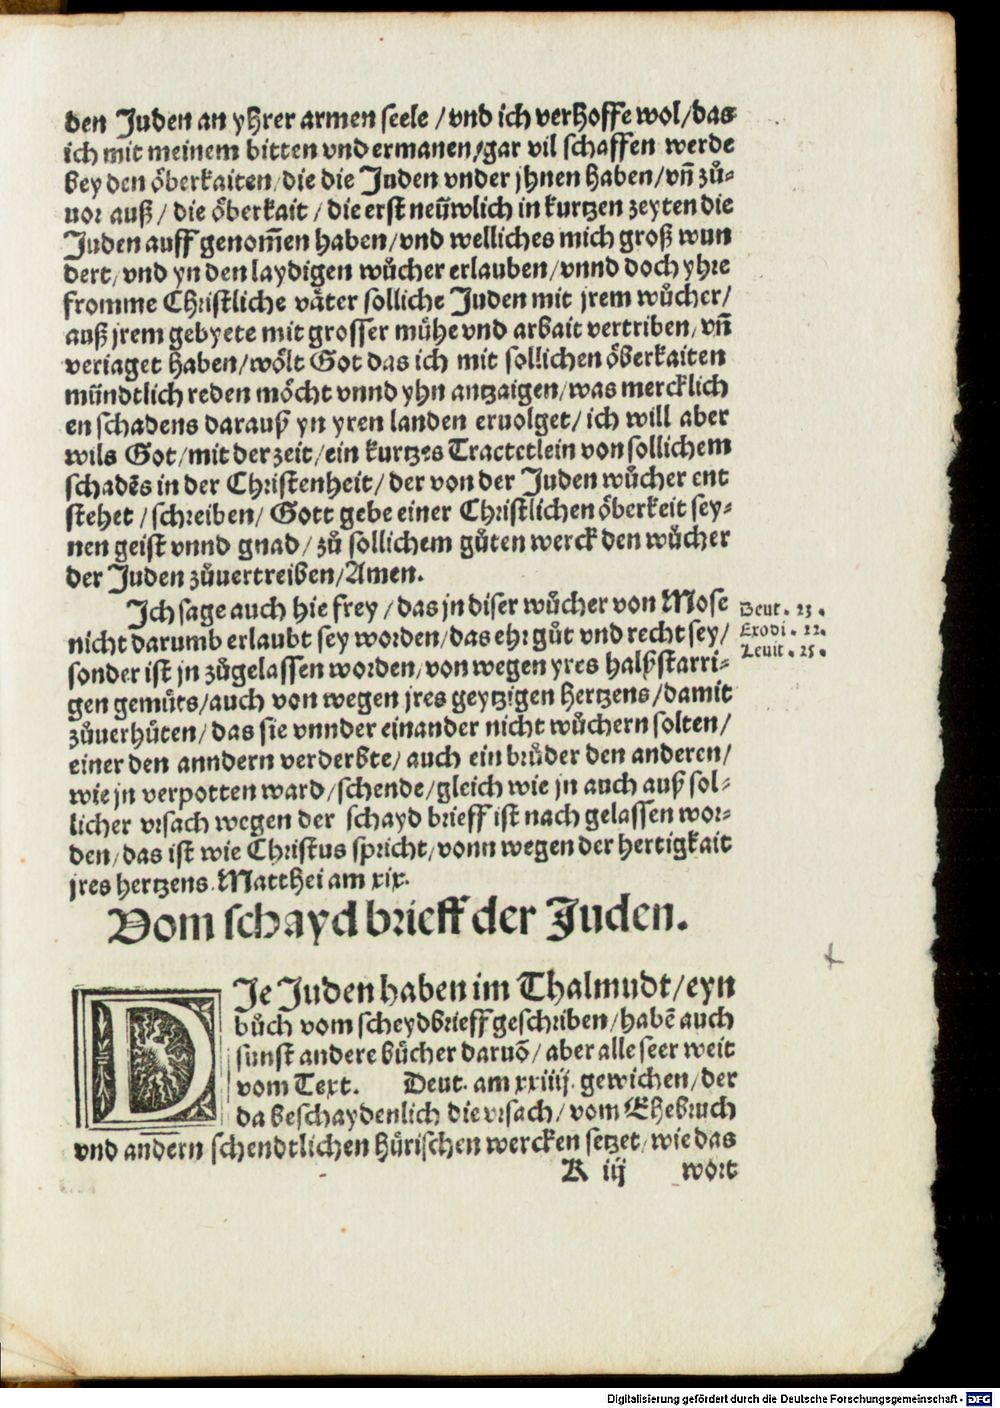 den Juden an yhrer armen seele / vnd ich verhoffe wol / das
ich mit meinem bitten vnd ermanen / gar vil schaffen werde
bey den öberkaiten / die die Juden vnder jhnen haben / vn̄ zů⸗
uor auß / die öberkait / die erst neüwlich in kurtzen zeyten die
Juden auff genom̄en haben / vnd welliches mich groß wun
dert / vnd yn den laydigen wůcher erlauben / vnnd doch yhre
fromme Christliche väter solliche Juden mit jrem wůcher /
auß jrem gebyete mit grosser mühe vnd arbait vertriben / vn̄
veriaget haben / wölt Got das ich mit sollichen öberkaiten
mündtlich reden möcht vnnd yhn antzaigen / was mercklich
en schadens darauß yn yren landen eruolget / ich will aber
wils Got / mit der zeit / ein kurtzes Tractetlein von sollichem
schadēs in der Christenheit / der von der Juden wůcher ent
stehet / schreiben / Gott gebe einer Christlichen öberkeit sey⸗
nen geist vnnd gnad / zů sollichem gůten werck den wůcher
der Juden zůuertreiben / Amen.
Ich sage auch hie frey / das jn diser wůcher von Mose
nicht darumb erlaubt sey worden / das ehr gůt vnd recht sey /
sonder ist jn zůgelassen worden / von wegen yres halßstarri⸗
gen gemüts / auch von wegen jres geytzigen hertzens / damit
zůuerhüten / das sie vnnder einander nicht wůchern solten /
einer den anndern verderbte / auch ein brůder den anderen /
wie jn verpotten ward / schende / gleich wie jn auch auß sol⸗
licher vrsach wegen der schayd brieff ist nach gelassen wor⸗
den / das ist wie Christus spricht / vonn wegen der hertigkait
jres hertzens. Matthei am xix.
Deut. 23.
Exodi. 22.
Leuit. 25.
Vom schayd brieff der Juden.
DJe Juden haben im Thalmudt / eyn
bůch vom scheydbrieff geschriben / habē auch
sunst andere bücher daruō / aber alle seer weit
vom Text. Deut. am xxiiij. gewichen / der
da beschaydenlich die vrsach / vom Ehebruch
vnd andern schendtlichen hürischen wercken setzet / wie das
K iij wort
Digitalisierung gefördert durch die Deutsche Forschungsgemeinschaft - DFG